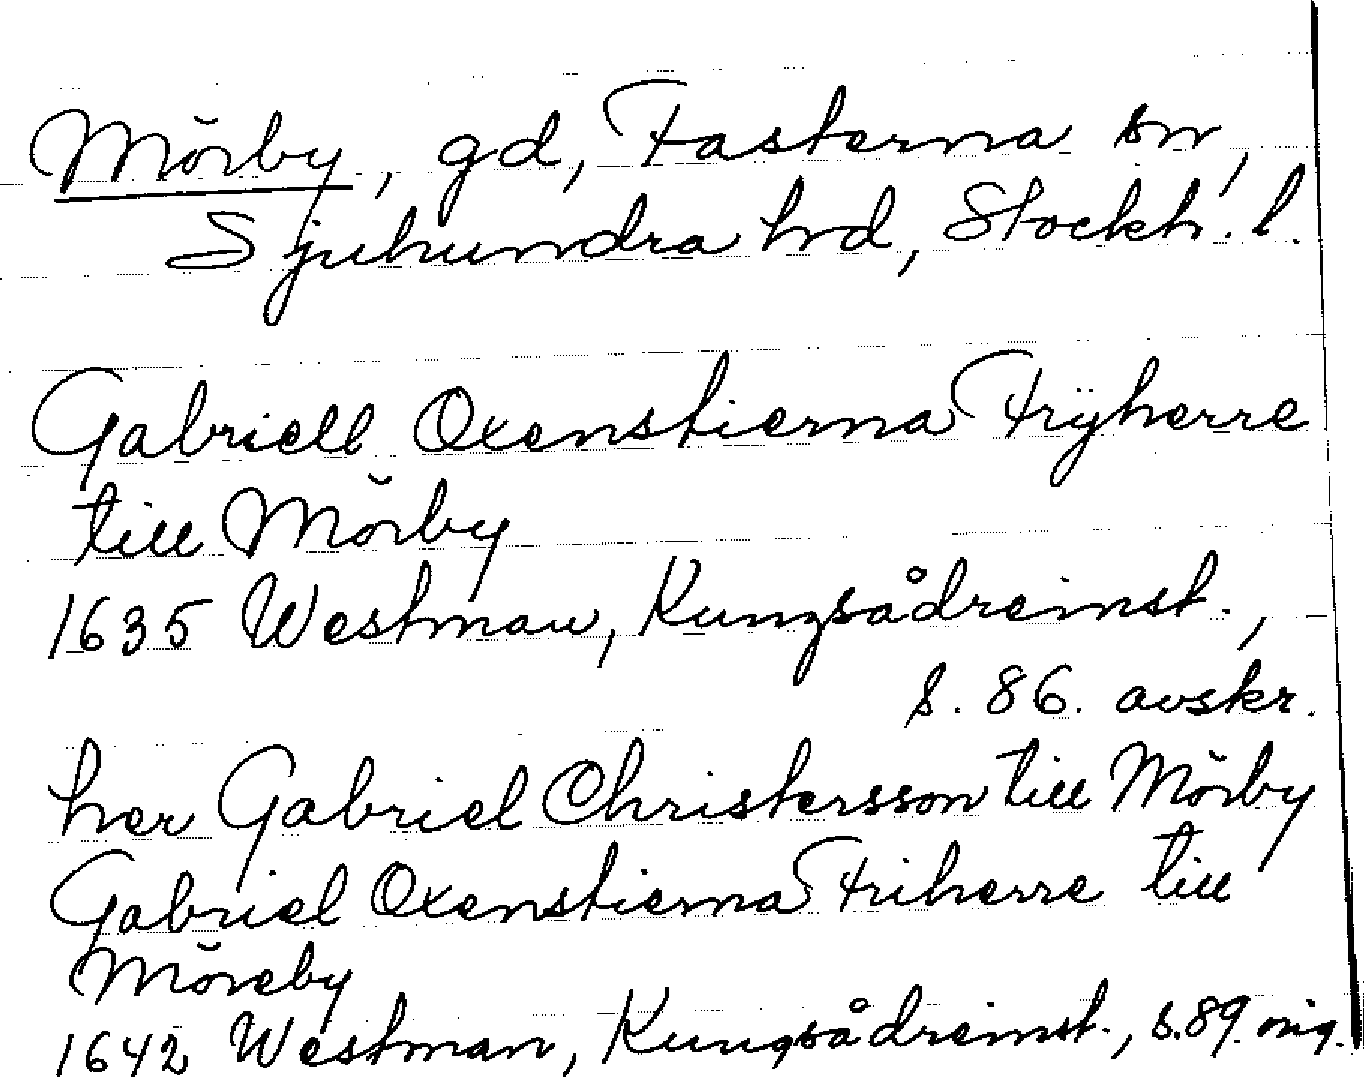 Mörby, gd, Fasterna sn,
Sjuhundra hd, Stockh. l.
Gabriell Oxenstierna Frÿherre
till Mörby
1635 Westman, Kungsådreinst.,
s. 86. avskr.
her Gabriel Christersson till Mörby
Gabriel Oxenstierna Friherre till
Möreby
1642 Westman, Kungsådreinst., s. 89. orig.